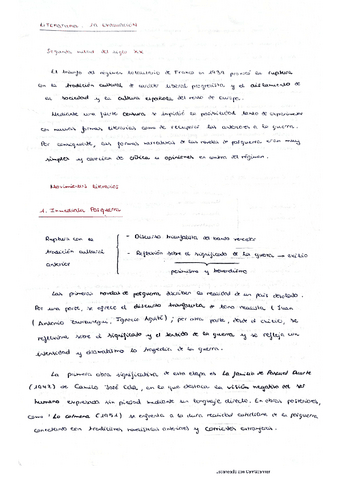 LITERATURA. 2ª EVALUACIÓN
Segunda mitad del siglo XX
El triunfo del régimen totalitario de Franco en 1939 provocó la ruptura
con la tradición cultural de carácter liberal progresista y el aislamiento de
la sociedad y la cultura española del resto de Europa.
Mediante una fuerte censura se impidió la posibilidad tanto de experimentar
con nuevas formas literarias como de recuperar las anteriores a la guerra.
Por consiguiente, las formas narrativas de las novelas de posguerra eran muy
simples y carecían de crítica u opiniones en contra del régimen.
Movimientos literarios
1. Inmediata Posguerra
Ruptura con la
tradición cultural
anterior
- Discurso triunfalista del bando vencedor
- Reflexión sobre el significado de la guerra
pesimismo y tremendismo
Las primeras novelas de posguerra describen la realidad de un país desolado.
Por una parte, se ofrece el discurso triunfalista de tono realista
(Antonio Zunzunegui, Ignacio Agustí); por otra parte, desde el exilio, se
reflexiona sobre el significado y el sentido de la guerra y se refleja con
intensidad y dramatismo la tragedia de la guerra.
La primera obra significativa de esta etapa es La familia de Pascual Duarte
(1942) de Camilo José Cela, en la que destaca la visión negativa del ser
humano expresada sin piedad mediante un lenguaje directo. En obras posteriores,
como La colmena (1951) se enfrenta a la dura realidad cotidiana de la posguerra
conectando con tradiciones narrativas anteriores y corrientes europeas.